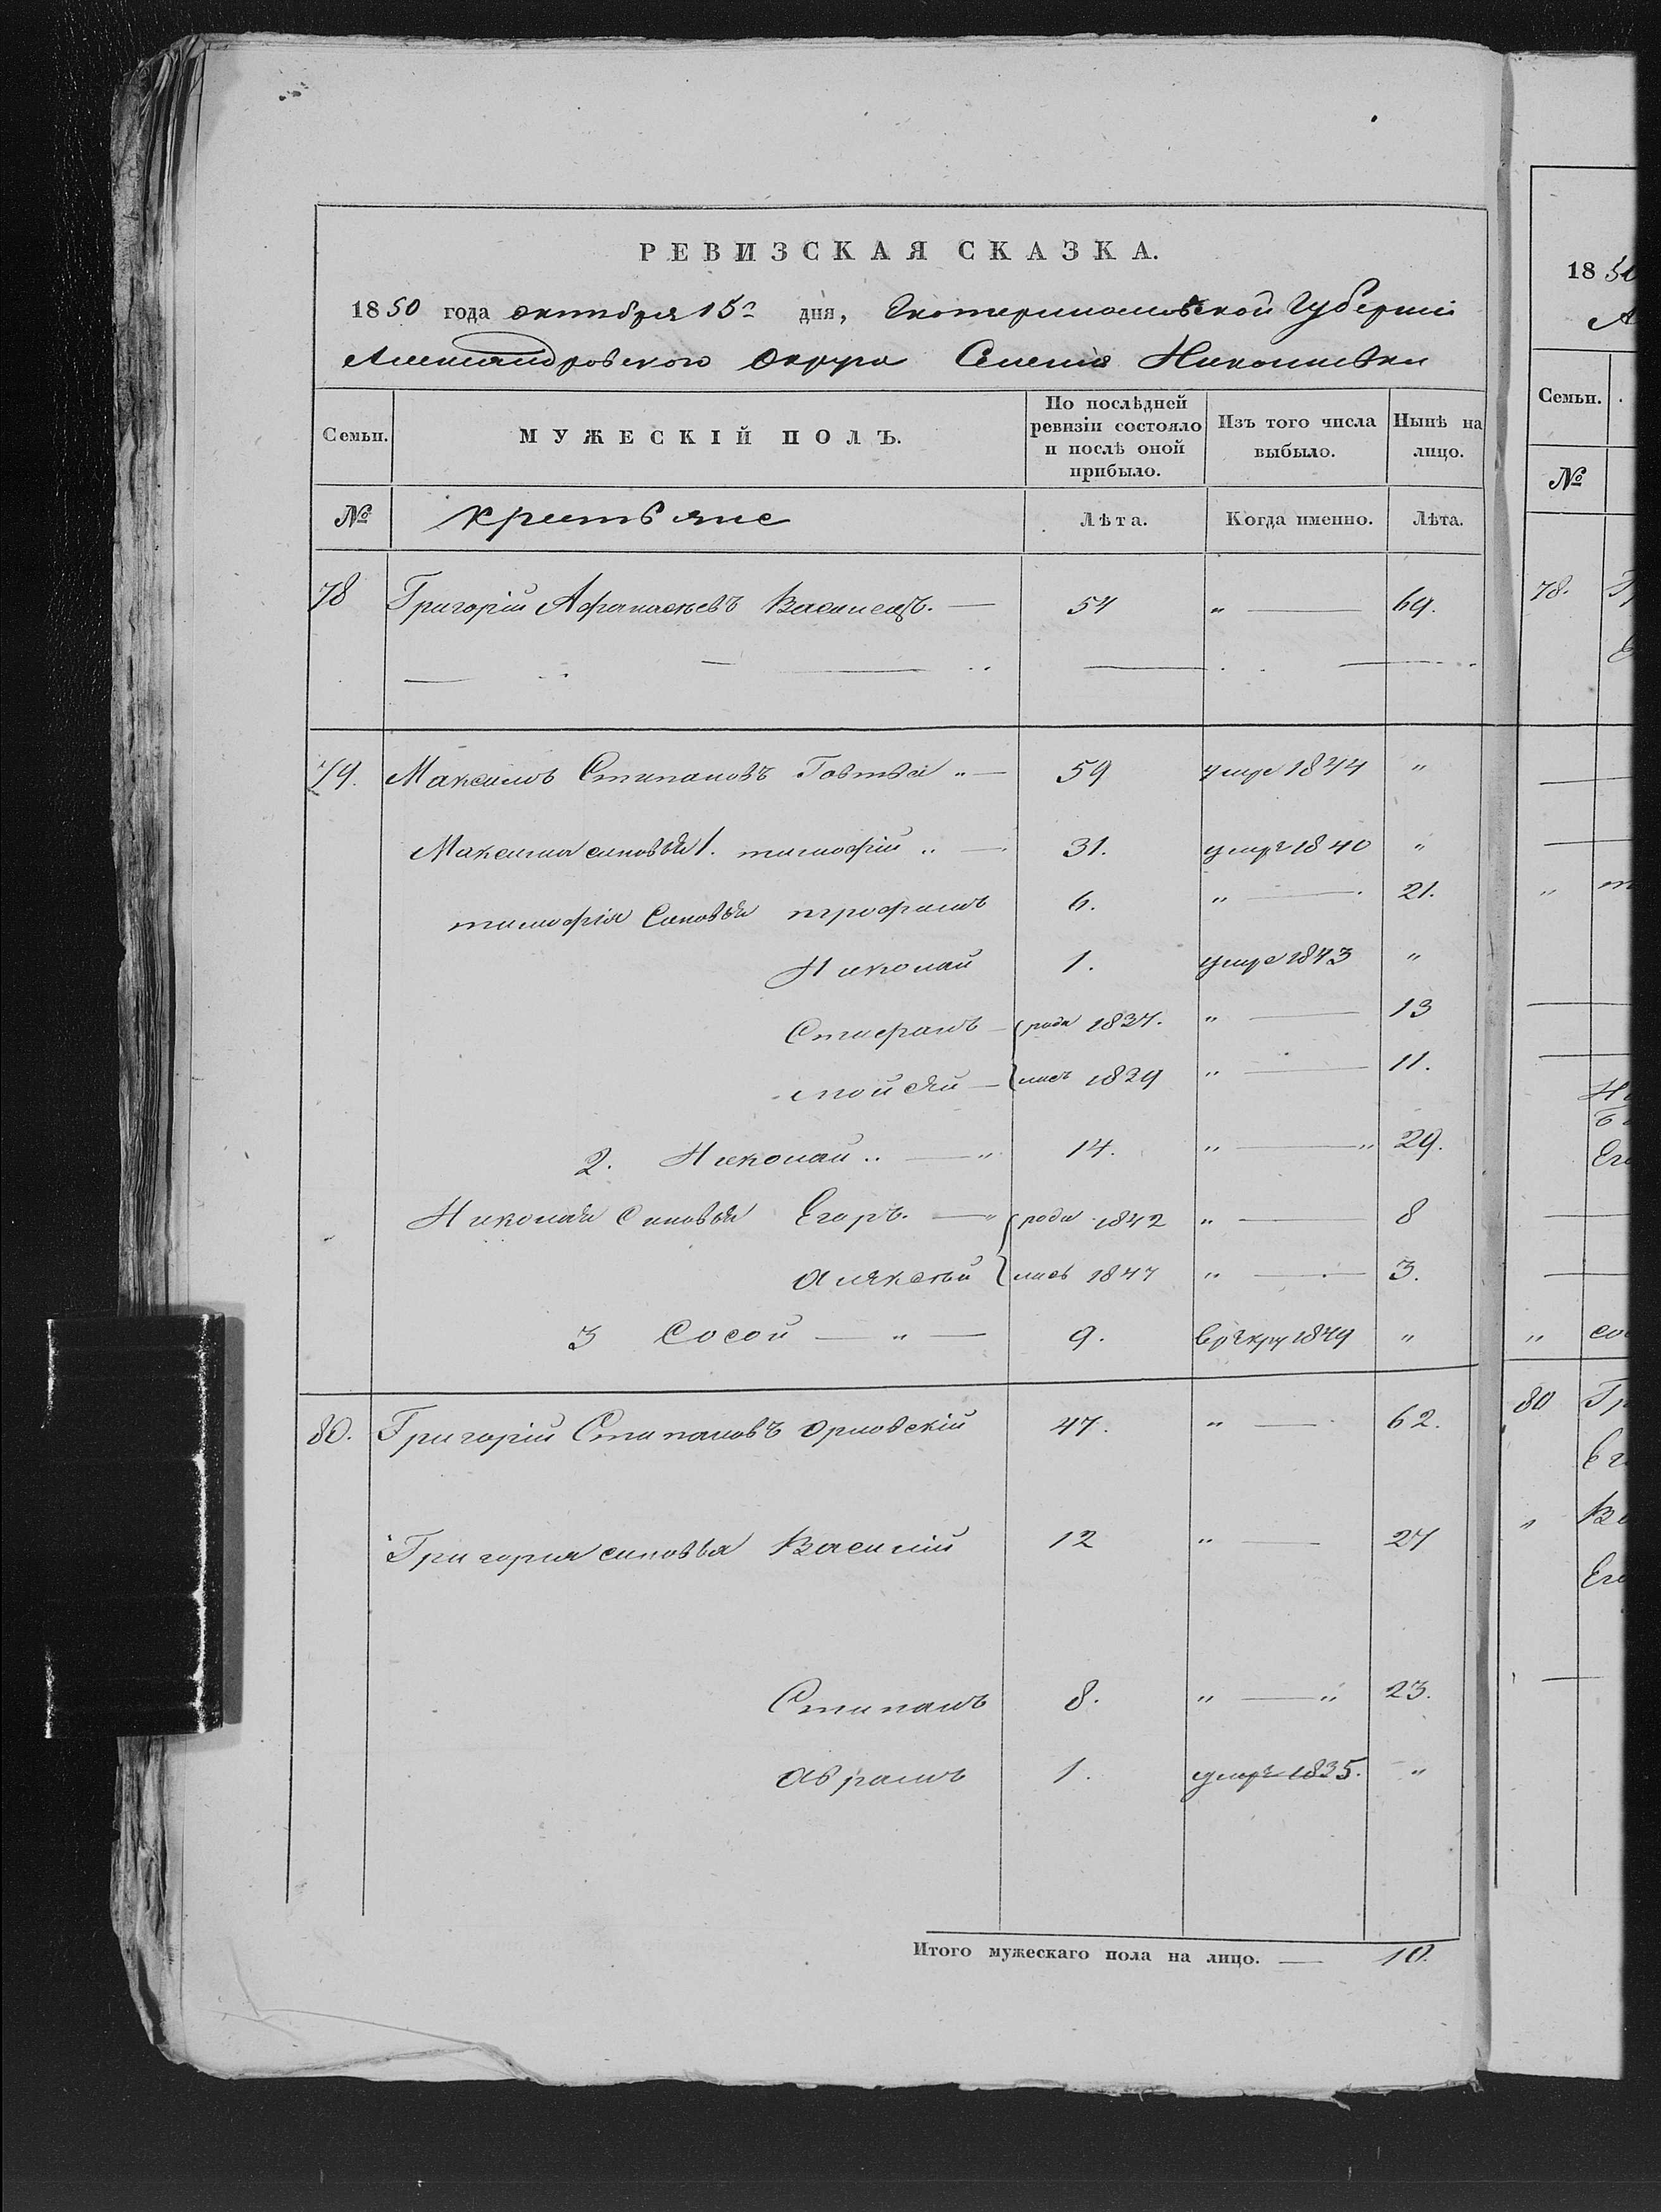 РЕВИЗСКАЯ СКАЗКА.
1850 года октября 15го дня, Екатеринославской Губернии
Александровского Округа Селения Николаевки
Семьи. МУЖЕСКІЙ ПОЛЪ. По послѣдней ревизіи состояло и послѣ оной прибыло. Изъ того числа выбыло. Нынѣ на лицо.
№ крестьяне Лѣта. Когда именно. Лѣта.
78 Григорій Афанасьевъ Василецъ. — 54 " — 69.
79. Максимъ Стипановъ Говтва " — 59 умре 1844 "
Максима синовья 1. тимофій " — 31. умре 1840 "
тимофія Синовья трофимъ 6. " — 21.
Николай 1. умре 1843 "
Стефанъ — роди 1837. " — 13
мойсей — лись 1839 " — 11.
2. Николай " — " 14. " — " 29.
Николая Синовья Егоръ. — " роди 1842 " — 8
алексѣй лись 1847 " — 3.
3 Сосой — " — 9. 1849 "
80. Григорій Стипановъ Орловскій 47. " — 62.
Григория синовья Василій 12 " — 27
Стипанъ 8. " — " 23.
Аврамъ 1. умре 1835. "
Итого мужескаго пола на лицо. — 10.
18 50
А
Семьи.
№
78.
"
"
80 Гр
"